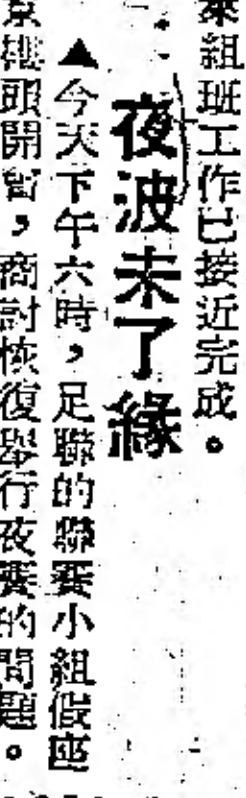 組班工作已接近完成。
夜波未了緣
▲今天下午六時，足聯的聯賽小組假座
京雄頭開會，商討恢復舉行夜賽的問題。